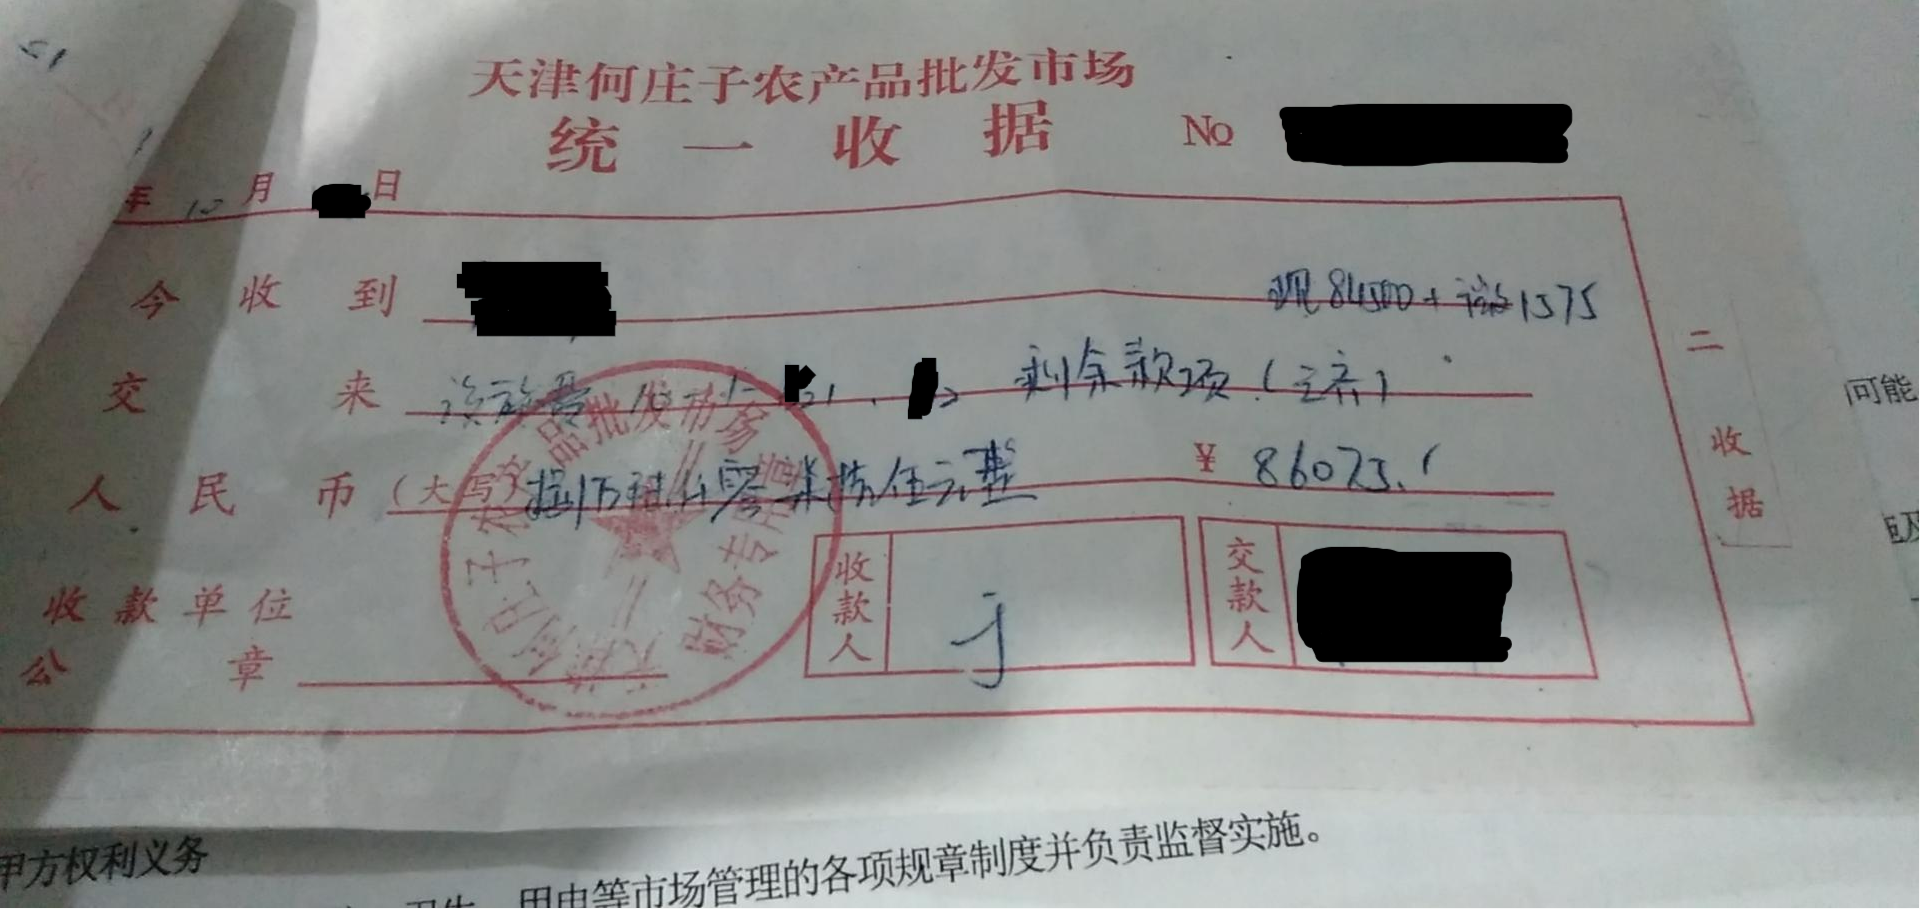 天津何庄子农产品批发市场
统一收据 No
年 12 月 日
今收到
现84500+微1575
交来 剩余款项(之齐)
人民币(大写) 捌万陆仟零柒拾伍元整 ¥ 86075.
收款单位
公章
收款人
交款人
二收据
农产品批发市场
财务专用章
可能
甲方权利义务
卫生、用电等市场管理的各项规章制度并负责监督实施。